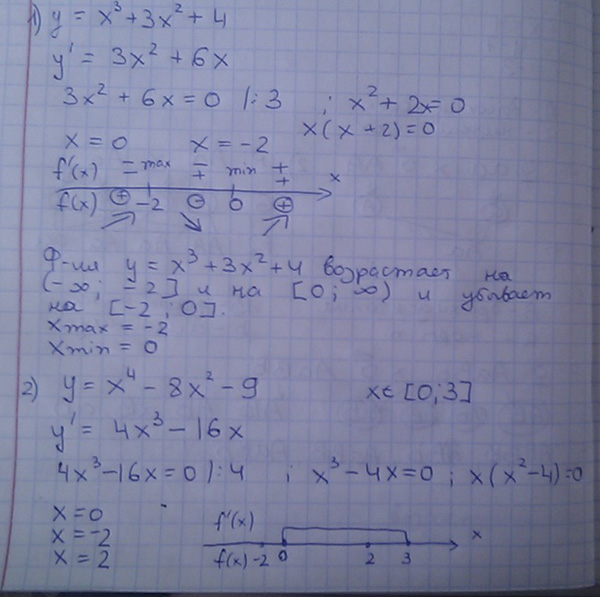 1) y = x³ + 3x² + 4
y' = 3x² + 6x
3x² + 6x = 0 /: 3 ; x² + 2x = 0
x(x + 2) = 0
x = 0 x = -2
f'(x) max min x
f(x) + -2 - 0 +
Ф-ция y = x³ + 3x² + 4 возрастает на
(-∞; -2] и на [0; ∞) и убывает
на [-2; 0].
xmax = -2
xmin = 0
2) y = x⁴ - 8x² - 9 x ∈ [0; 3]
y' = 4x³ - 16x
4x³ - 16x = 0 /: 4 ; x³ - 4x = 0 ; x(x² - 4) = 0
x = 0
x = -2
x = 2
f'(x) x
f(x) -2 0 2 3